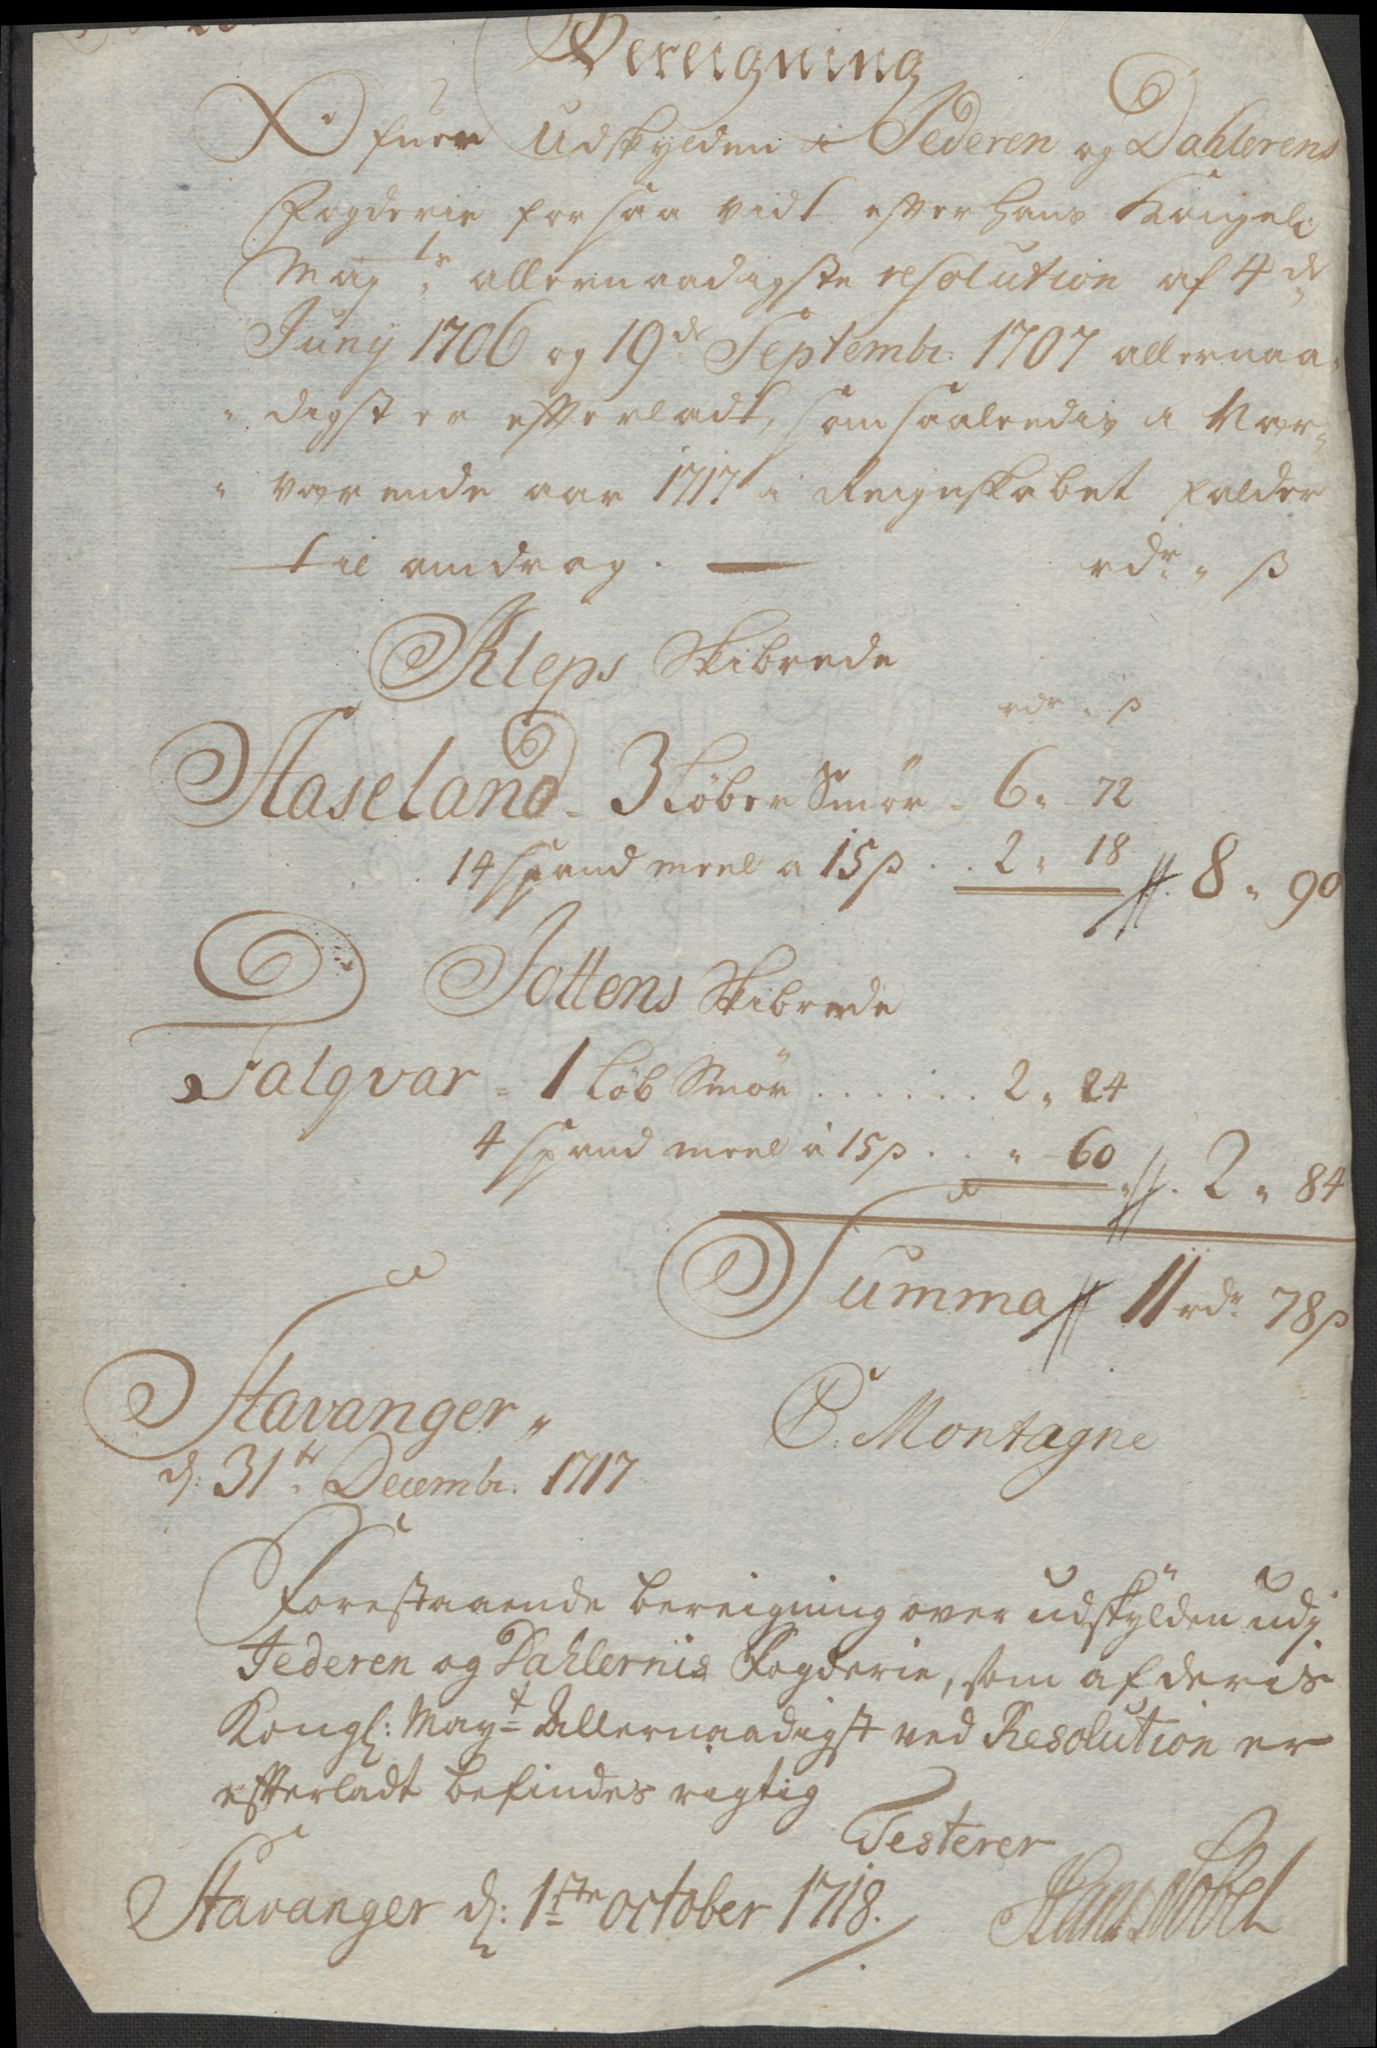 Bereigning
Ofuer Udskylden i Jederen og Dahlerens
Fogderie for saa vidt efter Hans Kongel:
May:ts allernaadigste resolution af 4de
Junij 1706 og 19de Septembr: 1707 allernaa-
digst er efterladt, som saaledis i Nær-
værende aar 1717 i Reignskabet falder
til omdrag. — rdr. " ß
Kleps Skibrede
rdr " ß
Haseland - 3 Løber Smør - 6 " 72
14 spand meel a 15 ß . . 2 " 18 // 8 " 90
Jottens Skibrede
Talgvar - 1 Løb Smør . . . . . . 2 " 24
4 spand meel à 15 ß . . " 60 // 2 " 84
Summa // 11 rdr 78 ß
Stavanger "
d: 31te Decembr: 1717
C. Montagne
Forestaaende bereigning over udskÿlden udj
Jederen og Dahlernis Fogderie, som af deris
Kongl: Mayt Allernaadigst ved Resolution er
efterladt befindes rigtig
Testerer
Stavanger d: 1ste october 1718.
Hans Nobel